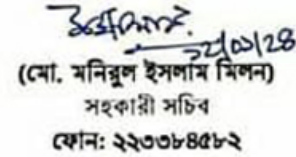 (মো. মনিরুল ইসলাম মিলন)
সহকারী সচিব
ফোন: ২২৩৩৮৪৫৮২